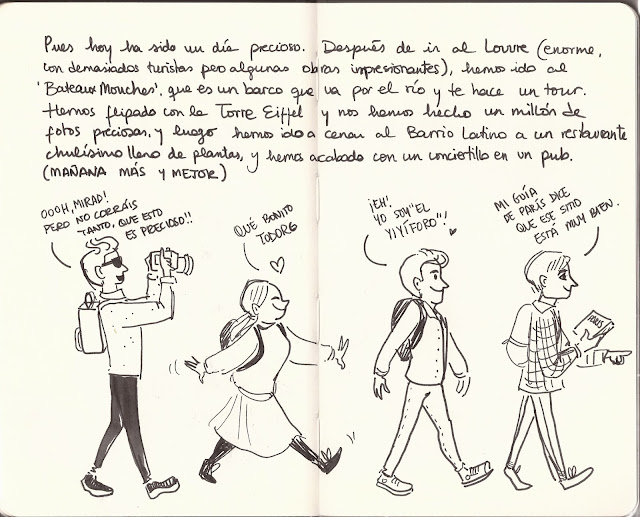 Pues hoy ha sido un día precioso. Después de ir al Louvre (enorme,
con demasiados turistas pero algunas obras impresionantes), hemos ido al
'Bateaux Mouches', que es un barco que va por el río y te hace un tour.
Hemos flipado con la Torre Eiffel y nos hemos hecho un millón de
fotos preciosas, y luego hemos ido a cenar al Barrio Latino a un restaurante
chulísimo lleno de plantas, y hemos acabado con un conciertillo en un pub.
(MAÑANA MÁS Y MEJOR)
OOOH, MIRAD!
PERO NO CORRÁIS
TANTO, QUE ESTO
ES PRECIOSO!!
QUÉ BONITO
TODORG
¡EH!
YO SOY "EL
YIYIFORO"!
MI GUÍA
DE PARÍS DICE
QUE ESE SITIO
ESTÁ MUY BIEN.
PARIS